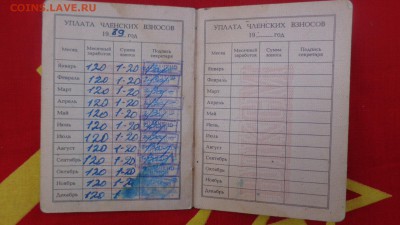 COINS.LAVE.RU
УПЛАТА ЧЛЕНСКИХ ВЗНОСОВ
19 89 год
Месяц Месячный заработок Сумма взноса Подпись секретаря
Январь 120 1-20
Февраль 120 1-20
Март 120 1-20
Апрель 120 1-20
Май 120 1-20
Июнь 120 1-20
Июль 120 1-20
Август 120 1-20
Сентябрь 120 1-20
Октябрь 120 1-20
Ноябрь 120 1-20
Декабрь 120
УПЛАТА ЧЛЕНСКИХ ВЗНОСОВ
19 год
Месяц Месячный заработок Сумма взноса Подпись секретаря
Январь
Февраль
Март
Апрель
Май
Июнь
Июль
Август
Сентябрь
Октябрь
Ноябрь
Декабрь